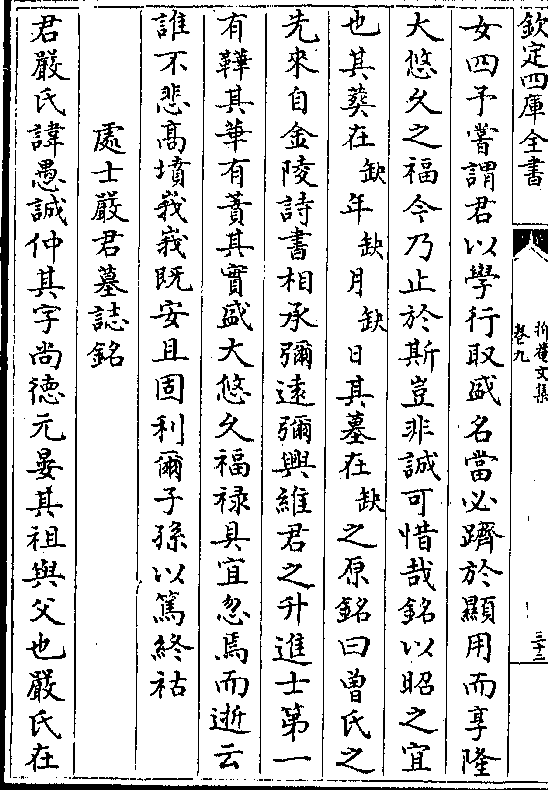 欽定四庫全書
抑菴文集
卷九
三十二
女四予嘗謂君以學行取盛名當必躋於顯用而享隆
大悠久之福今乃止於斯豈非誠可惜哉銘以昭之宜
也其葬在缺年缺月缺日其墓在缺之原銘曰曾氏之
先來自金陵詩書相承彌遠彌興維君之升進士第一
有韡其華有蕡其實盛大悠久福祿具宜忽焉而逝云
誰不悲高墳峩峩既安且固利爾子孫以篤終祜
處士嚴君墓誌銘
君嚴氏諱愚誠仲其字尚德元晏其祖與父也嚴氏在